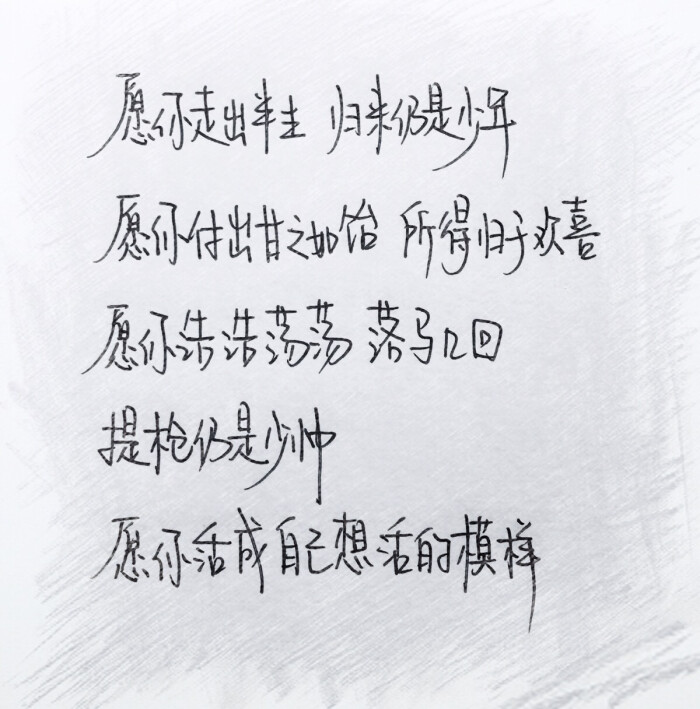 愿你走出半生 归来仍是少年
愿你付出甘之如饴 所得归于欢喜
愿你浩浩荡荡 落马几回
提枪仍是少帅
愿你活成自己想活的模样